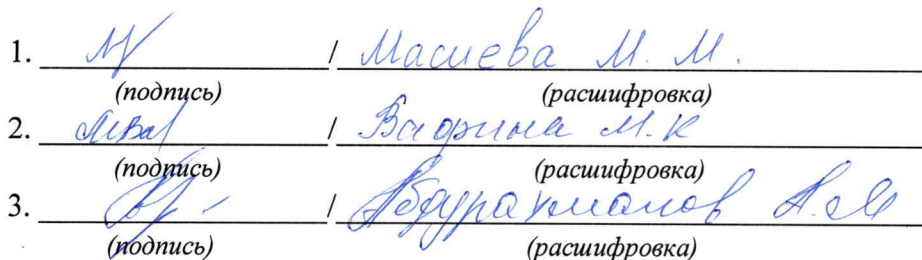 1. / Масиева М. М.
(подпись) (расшифровка)
2. / М.К
(подпись) (расшифровка)
3. / Абдурахманов А.М
(подпись) (расшифровка)